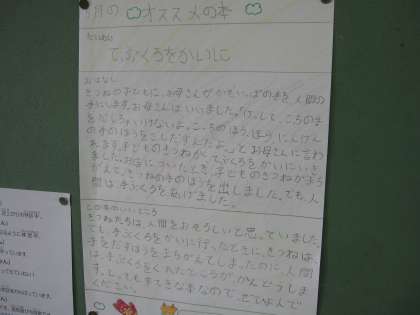 月の オススメの本
だいめい
てぶくろをかいに
おはなし
きつねの子どもに、お母さんがかたいっぽの手を人間の
手にします。お母さんはいいました。「けっして、こっちの手
をだしちゃいけないよ。こっちのほう、ほらにんげん
の手のほうをこしだすんだよ。」とお母さんに言わ
れます。子どものきつねがてぶくろをかいにいき
ました。お店についたとき、子どものきつねがまち
がえて、きつねの手のほうを出しました。でも、人
間は、手ぶくろをあげました。
この本のいいところ
きつねたちは、人間をおそろしいと思っていました。
でも、手ぶくろをかいに行ったときに、きつねは、
手をだすほうをまちがえてしまったのに、人間
は、手ぶくろをくれたところがかんどうしま
す。とってもすてきな本なので、ぜひよんで
ください。